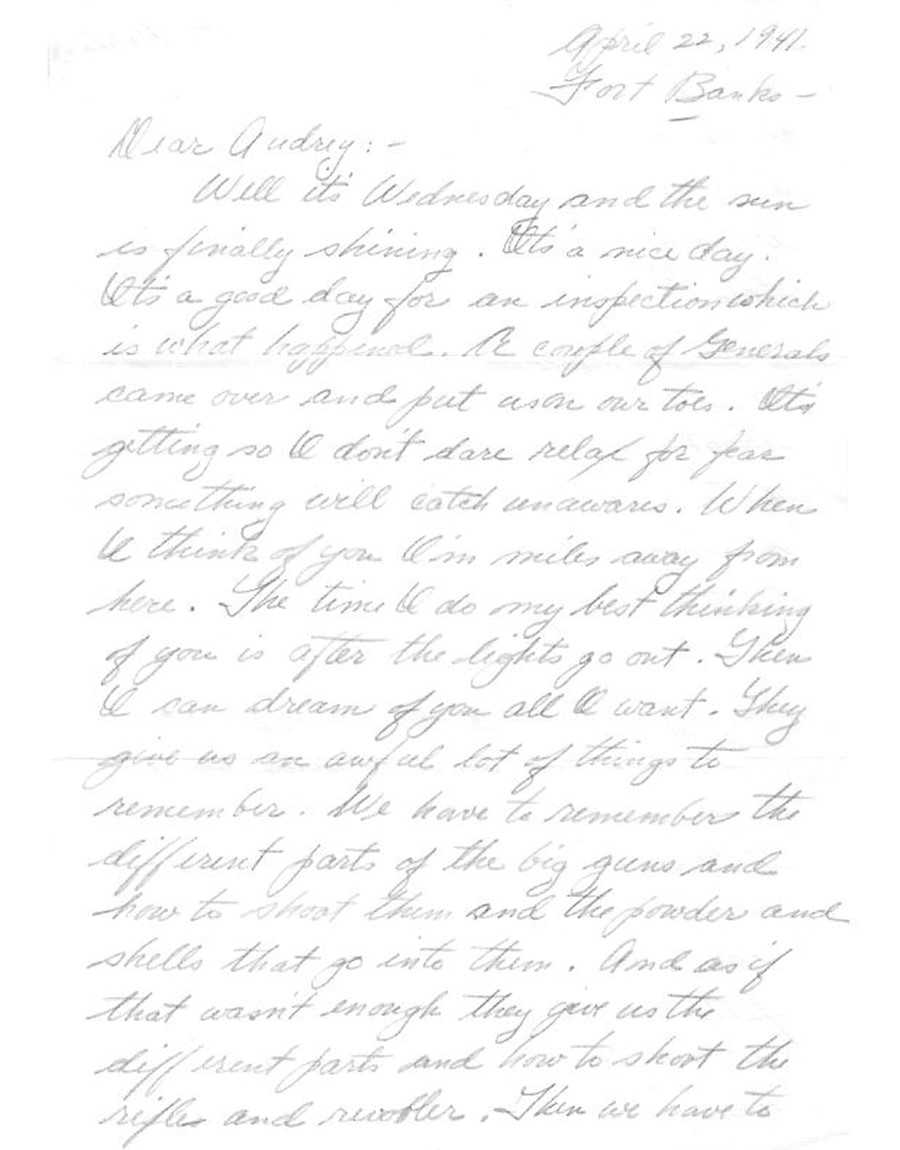 April 22, 1941.
Fort Banks -
Dear Audrey: -
Well it's Wednesday and the sun
is finally shining. It's a nice day.
It's a good day for an inspection which
is what happened. A couple of Generals
came over and put us on our toes. It's
getting so I don't dare relax for fear
something will catch unawares. When
I think of you I'm miles away from
here. The time I do my best thinking
of you is after the lights go out. Then
I can dream of you all I want. They
give us an awful lot of things to
remember. We have to remember the
different parts of the big guns and
how to shoot them and the powder and
shells that go into them. And as if
that wasn't enough they give us the
different parts and how to shoot the
rifle and revobler. Then we have to